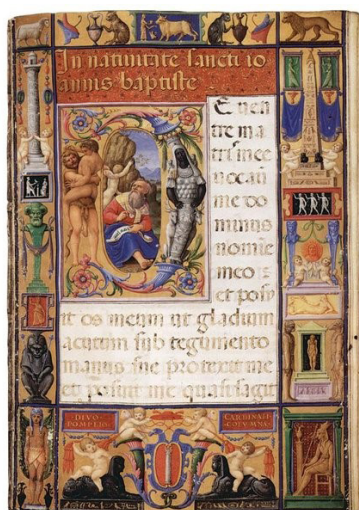 In natiuitate sancti io
annis baptiste
E uen
tre ma
tris mee
uocauit
me do
minus
nomie
meo
et posu
it os meum ut gladium
acutum sub tegumento
manus sue protexit me
et posuit me quasi sagit
DIVO
POMPEIO
CARDINALI
COLVMNA